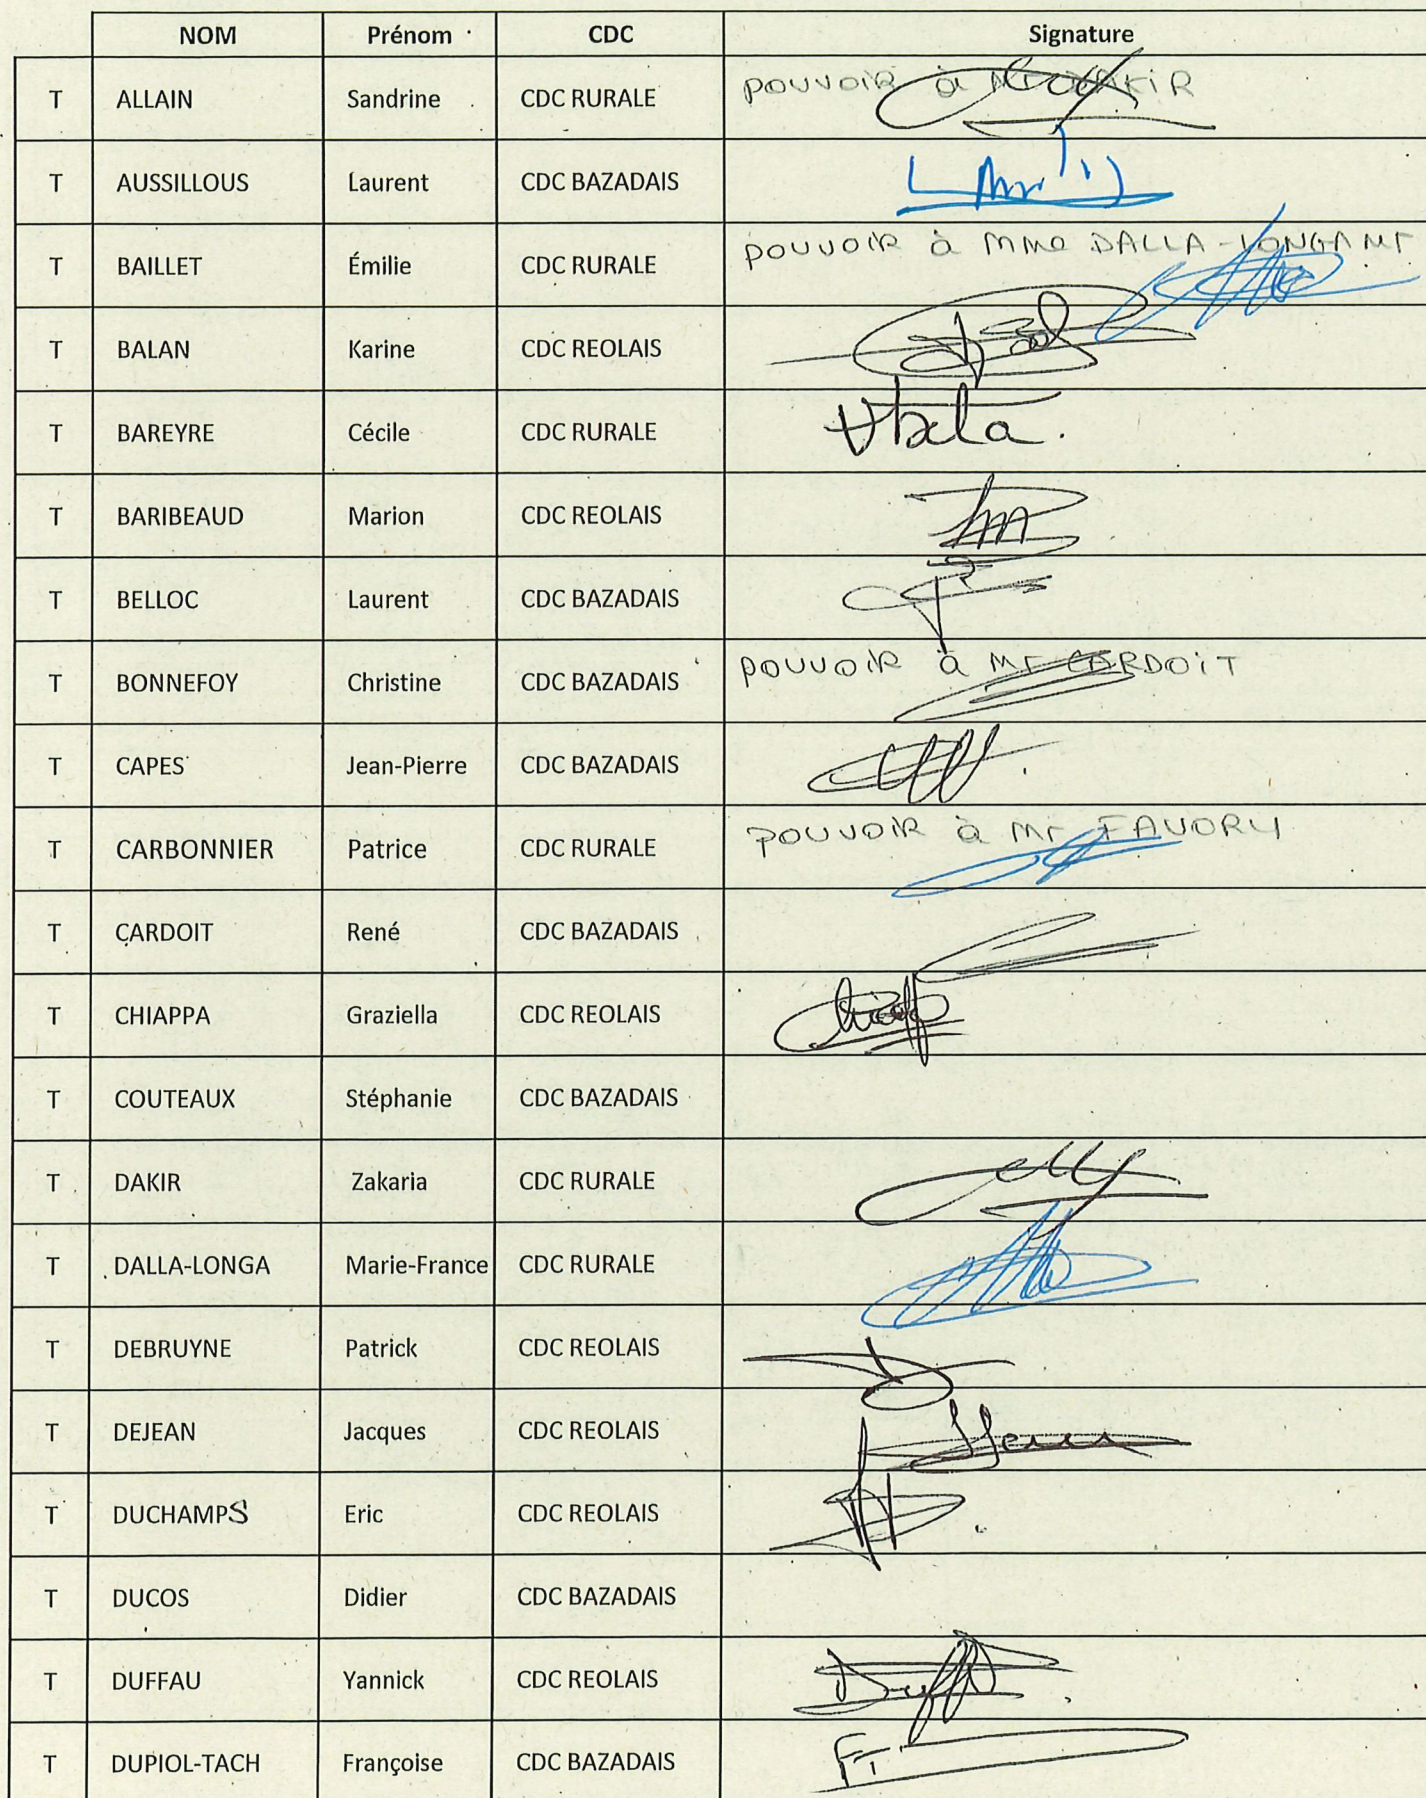 NOM Prénom CDC Signature
T ALLAIN Sandrine CDC RURALE pouvoir à Mr DAKIR
T AUSSILLOUS Laurent CDC BAZADAIS
T BAILLET Émilie CDC RURALE pouvoir à Mme DALLA-LONGA MF
T BALAN Karine CDC REOLAIS
T BAREYRE Cécile CDC RURALE
T BARIBEAUD Marion CDC REOLAIS
T BELLOC Laurent CDC BAZADAIS
T BONNEFOY Christine CDC BAZADAIS pouvoir à Mr CARDOIT
T CAPES Jean-Pierre CDC BAZADAIS
T CARBONNIER Patrice CDC RURALE pouvoir à Mr FAVORY
T CARDOIT René CDC BAZADAIS
T CHIAPPA Graziella CDC REOLAIS
T COUTEAUX Stéphanie CDC BAZADAIS
T DAKIR Zakaria CDC RURALE
T DALLA-LONGA Marie-France CDC RURALE
T DEBRUYNE Patrick CDC REOLAIS
T DEJEAN Jacques CDC REOLAIS
T DUCHAMPS Eric CDC REOLAIS
T DUCOS Didier CDC BAZADAIS
T DUFFAU Yannick CDC REOLAIS
T DUPIOL-TACH Françoise CDC BAZADAIS